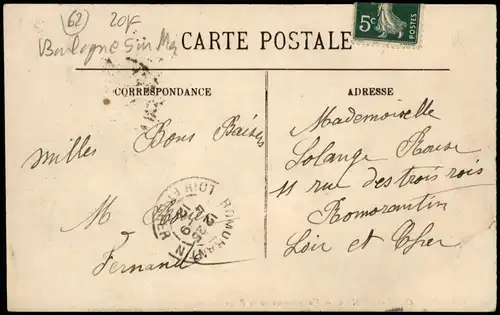 62 20F
Boulogne Sur Mer
CARTE POSTALE
5c
POSTES
CORRESPONDANCE
ADRESSE
Milles Bons Baisers
M
Fernand
Mademoiselle
Solange Rouse
11 rue des trois rois
Romorantin
Loir et Cher
ROMORANTIN
LOIR ET CHER